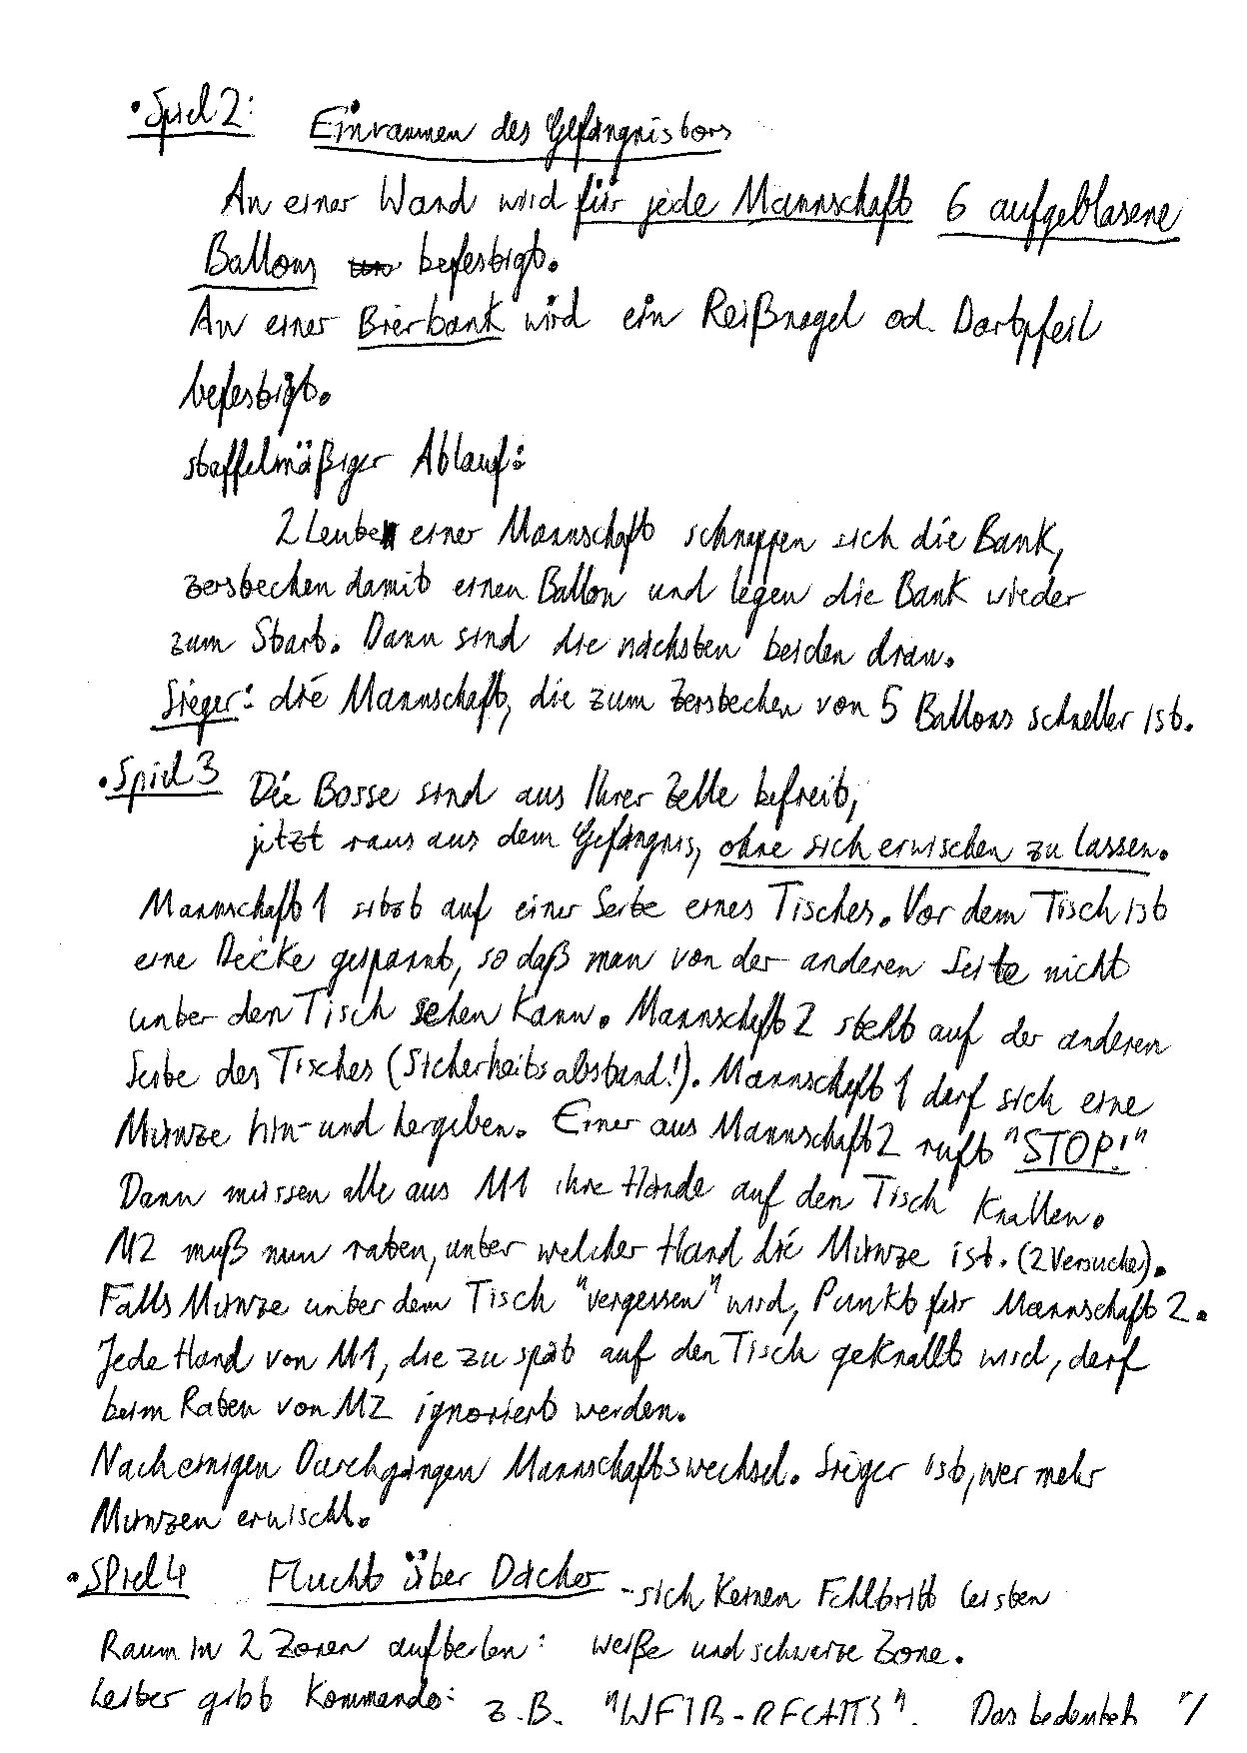 • Spiel 2: Einrammen des Gefängnistors
An einer Wand wird für jede Mannschaft 6 aufgeblasene
Ballons befestigt.
An einer Bierbank wird ein Reißnagel od. Dartpfeil
befestigt.
staffelmäßiger Ablauf:
2 Leute einer Mannschaft schnappen sich die Bank,
zerstechen damit einen Ballon und legen die Bank wieder
zum Start. Dann sind die nächsten beiden dran.
Sieger: die Mannschaft, die zum Zerstechen von 5 Ballons schneller ist.
• Spiel 3 Die Bosse sind aus Ihrer Zelle befreit,
jetzt raus aus dem Gefängnis, ohne sich erwischen zu lassen.
Mannschaft 1 sitzt auf einer Seite eines Tisches. Vor dem Tisch ist
eine Decke gespannt, so daß man von der anderen Seite nicht
unter den Tisch sehen kann. Mannschaft 2 steht auf der anderen
Seite des Tisches (Sicherheitsabstand!). Mannschaft 1 darf sich eine
Münze hin- und hergeben. Einer aus Mannschaft 2 ruft "STOP!"
Dann müssen alle aus M1 ihre Hände auf den Tisch knallen.
M2 muß nun raten, unter welcher Hand die Münze ist. (2 Versuche).
Falls Münze unter dem Tisch "vergessen" wird, Punkt für Mannschaft 2.
Jede Hand von M1, die zu spät auf den Tisch geknallt wird, darf
beim Raten von M2 ignoriert werden.
Nach einigen Durchgängen Mannschaftswechsel. Sieger ist, wer mehr
Münzen erwischt.
• SPiel 4 Flucht über Dächer - sich keinen Fehltritt leisten
Raum in 2 Zonen aufteilen: weiße und schwarze Zone.
Leiter gibt Kommando: z.B. "WEIß-RECHTS". Das bedeutet "/